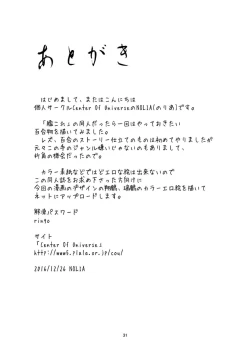 あとがき
はじめまして、またはこんにちは
個人サークルCenter Of UniverseのNOLIA(のりあ)です。
「艦これ」の同人だったら一回はやっておきたい
百合物を描いてみました。
レズ、百合のストーリー仕立てのものは初めてやりましたが
元々この手のジャンル嫌いじゃないのもありまして、
カラー表紙などではどエロな絵は出来ないので
この同人誌をお求め下さった方向けに
今回の漫画のデザインの翔鶴、瑞鶴のカラーエロ絵を描いて
ネットにアップロードします。
解凍パスワード
ringo
サイト
「Center Of Universe」
2016/12/26 NOLIA
31